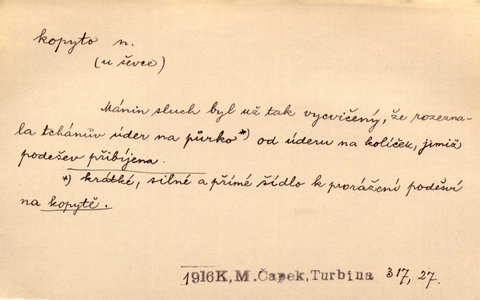 kopyto n.
(u ševce)
Mánin sluch byl už tak vycvičený, že rozezna-
la tchánův úder na půrko*) od úderu na kolíček, jimiž
podešev přibíjena.
*) krátké, silné a přímé šídlo k prorážení podešví
na kopytě.
1916 K.M. Čapek, Turbina 317, 27.